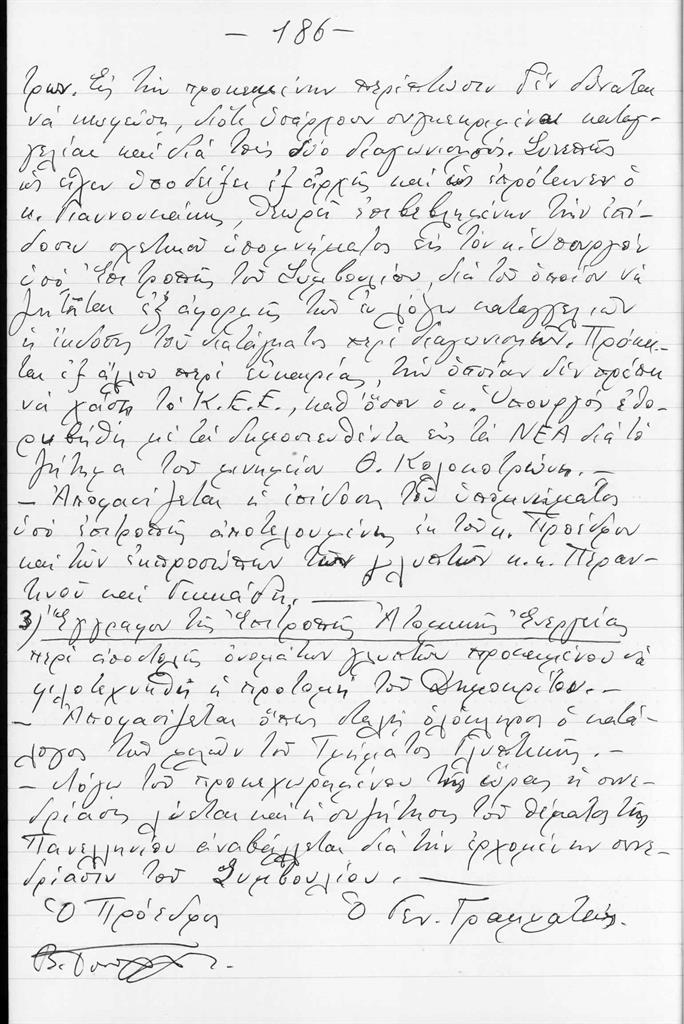 - 186 -
τρων. Εἰς τὴν προκειμένην περίπτωσιν δὲν δύναται
νὰ κωφεύση, διότι ὑπάρχουν συγκεκριμέναι καταγ-
γελίαι καὶ διὰ τοὺς δύο διαγωνισμούς. Συνεπῶς
ὡς εἶχεν ὑποδείξει ἐξ ἀρχῆς καὶ ὡς ἐπρότεινεν ὁ
κ. Γιαννουκάκης, θεωρεῖ ἐπιβεβλημένην τὴν ἐπί-
δοσιν σχετικοῦ ὑπομνήματος εἰς τὸν κ. Ὑπουργὸν
ὑπὸ Ἐπιτροπῆς τοῦ Συμβουλίου, διὰ τοῦ ὁποίου νὰ
ζητῆται ἐξ ἀφορμῆς τῶν ἐν λόγω καταγγελιῶν
ἡ ἔκδοσις τοῦ διατάγματος περὶ διαγωνισμῶν. Πρόκει-
ται ἐξ ἄλλου περὶ εὐκαιρίας, τὴν ὁποίαν δὲν πρέπει
νὰ χάση τὸ Κ.Ε.Ε., καθ' ὅσον ὁ κ. Ὑπουργὸς ἐθο-
ρυβήθη μὲ τὰ δημοσιευθέντα εἰς τὰ ΝΕΑ διὰ τὸ
ζήτημα τοῦ μνημείου Θ. Κολοκοτρώνη. -
- Ἀποφασίζεται ἡ ἐπίδοσις τοῦ ὑπομνήματος
ὑπὸ ἐπιτροπῆς ἀποτελουμένης ἐκ τοῦ κ. Προέδρου
καὶ τῶν ἐκπροσώπων τῶν γλυπτῶν κ.κ. Πέραν-
τινοῦ καὶ
3) Ἔγγραφον τῆς Ἐπιτροπῆς Ἀτομικῆς Ἐνεργείας
περὶ ἀποστολῆς ὀνομάτων γλυπτῶν προκειμένου νὰ
φιλοτεχνηθῆ ἡ προτομὴ τοῦ Δημοκρίτου. -
- Ἀποφασίζεται ὅπως σταλῆ ὁλόκληρος ὁ κατά-
λογος τῶν μελῶν τοῦ Τμήματος Γλυπτικῆς. -
- Λόγω τοῦ προκεχωρημένου τῆς ὥρας ἡ συνε-
δρίασις λύεται καὶ ἡ συζήτησις τοῦ θέματος τῆς
Πανελληνίου ἀναβάλλεται διὰ τὴν ἐρχομένην συνε-
δρίασιν τοῦ Συμβουλίου. -
Ὁ Πρόεδρος Ὁ Γεν. Γραμματεύς.